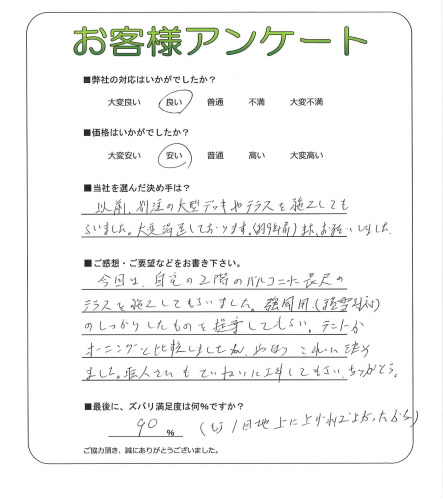 お客様アンケート
■弊社の対応はいかがでしたか?
大変良い 良い 普通 不満 大変不満
■価格はいかがでしたか?
大変安い 安い 普通 高い 大変高い
■当社を選んだ決め手は?
以前、別注の大型デッキやテラスを施工しても
らいました。大変満足しております。(約9年前)また、お願いしました
■ご感想・ご要望などをお書き下さい。
今回は、自宅の2階のバルコニーに長尺の
テラスを施工してもらいました。強風用(積雪対応)
のしっかりしたものを提案してもらい、テントか
オーニングと比較しましたが、やはりこれに決め
ました。職人さんもていねいに工事してもらい、ありがとう。
■最後に、ズバリ満足度は何%ですか?
90 %
(もう1日
ご協力頂き、誠にありがとうございました。